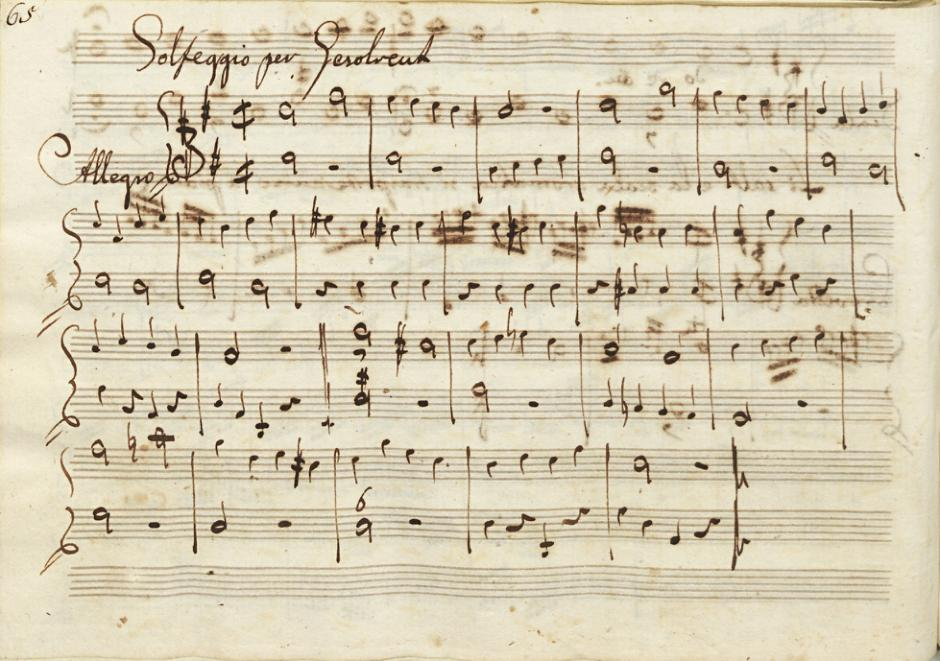 65
Solfeggio per Gesolreut
Allegro
6